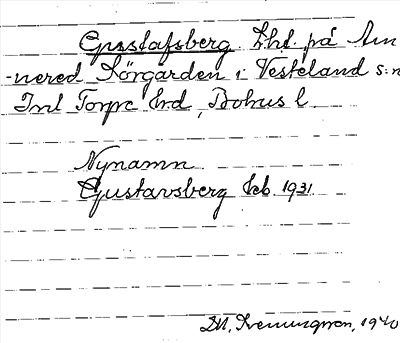 Gustafsberg Lht. på Am
-nered Sörgarden i Vesteland s:n
Inl Torpe hd, Bohus l.
Nynamn
Gustavsberg Jeb 1931
1940